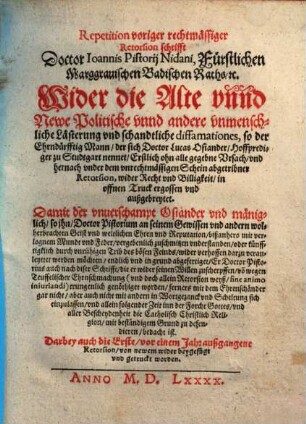 Repetition voriger rechtmässiger
Retorsion schrifft
Doctor Ioannis Pistorij Nidani, Fürstlichen
Marggrauischen Badischen Raths/ꝛc.
Wider die Alte vnnd
Newe Politische vnnd andere vnmensch-
liche Lästerung vnd schandtliche diffamationes, so der
Ehrndürfftig Mann / der sich Doctor Lucas Osiander / Hoffpredi-
ger zu Studtgart nennet / Erstlich ohn alle gegebne Vrsach / vnd
hernach vnder dem vnrechtmässigen Schein abgetribner
Retorsion, wider Recht vnd Billigkeit / in
offnen Truck ergossen vnd
außgebreytet.
Damit der vnuerschampt Osiander vnd mänig-
lich / so ihn / Doctor Pistorium an seinem Gewissen vnd andern vol-
herbrachten Geist vnd weltlichen Ehren vnd Reputation, bißanhero mit ver-
logenem Mund vnd Feder / vergebenlich zuschmitzen vnderstanden / oder künff-
tigklich durch vnrühigen Trib des bösen Feinds / wider verhoffen darzu veran-
leytet werden möchten / endlich vnd in grund abgefertiget / Er Doctor Pisto-
rius auch nach diser Schrifft /
Teuffelischer Ehrnschmachung ( vnd doch allein Retorsion weyß / sine animo
iniuriandi)
gar nicht / aber auch nicht mit andern in Wortgezanck vnd Scheltung sich
einzulassen / vnd allein folgender Zeit inn der Forcht Gottes / vnd
aller Bescheydenheit die Catholisch Christlich Reli-
gion / mit beständigem Grund zu defen-
dieren / bedacht ist.
Darbey auch die Erste / vor einem Jahr außgangene
Retorsion / von newem wider beygefügt
vnd getruckt worden.
ANNO M. D. LXXXX.